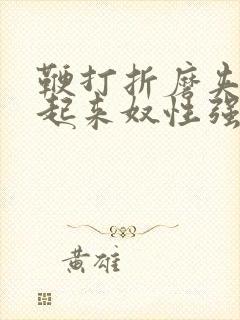 鞭打折磨夹
起来奴性强
黄雄